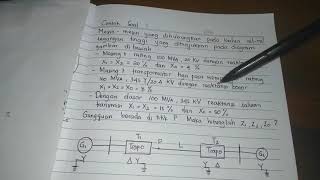 Contoh Soal :
Mesin - mesin yang dihubungkan pada kedua
tegangan tinggi yang ditunjukkan pada diagram
gambar di bawah
- Masing² rating 100 MVA, 20 KV dengan reaktansi
X₁ = X₂ = 20 % dan X₀ = 4 %
- Masing² transformator tiga fasa rating
100 MVA, 345 / 20 KV dengan reaktansi bocor
X₁ = X₂ = X₀ = 8 %
- Dengan dasar 100 MVA, 345 KV reaktansi saluran
transmisi X₁ = X₂ = 15 % dan X₀ = 50 %
Gangguan berada di titik P Maka hitunglah Z₁, Z₂, Z₀ ?
T₁ T₂
G₁ Trapo P L Trapo G₂
Y Δ Y Y Δ Y